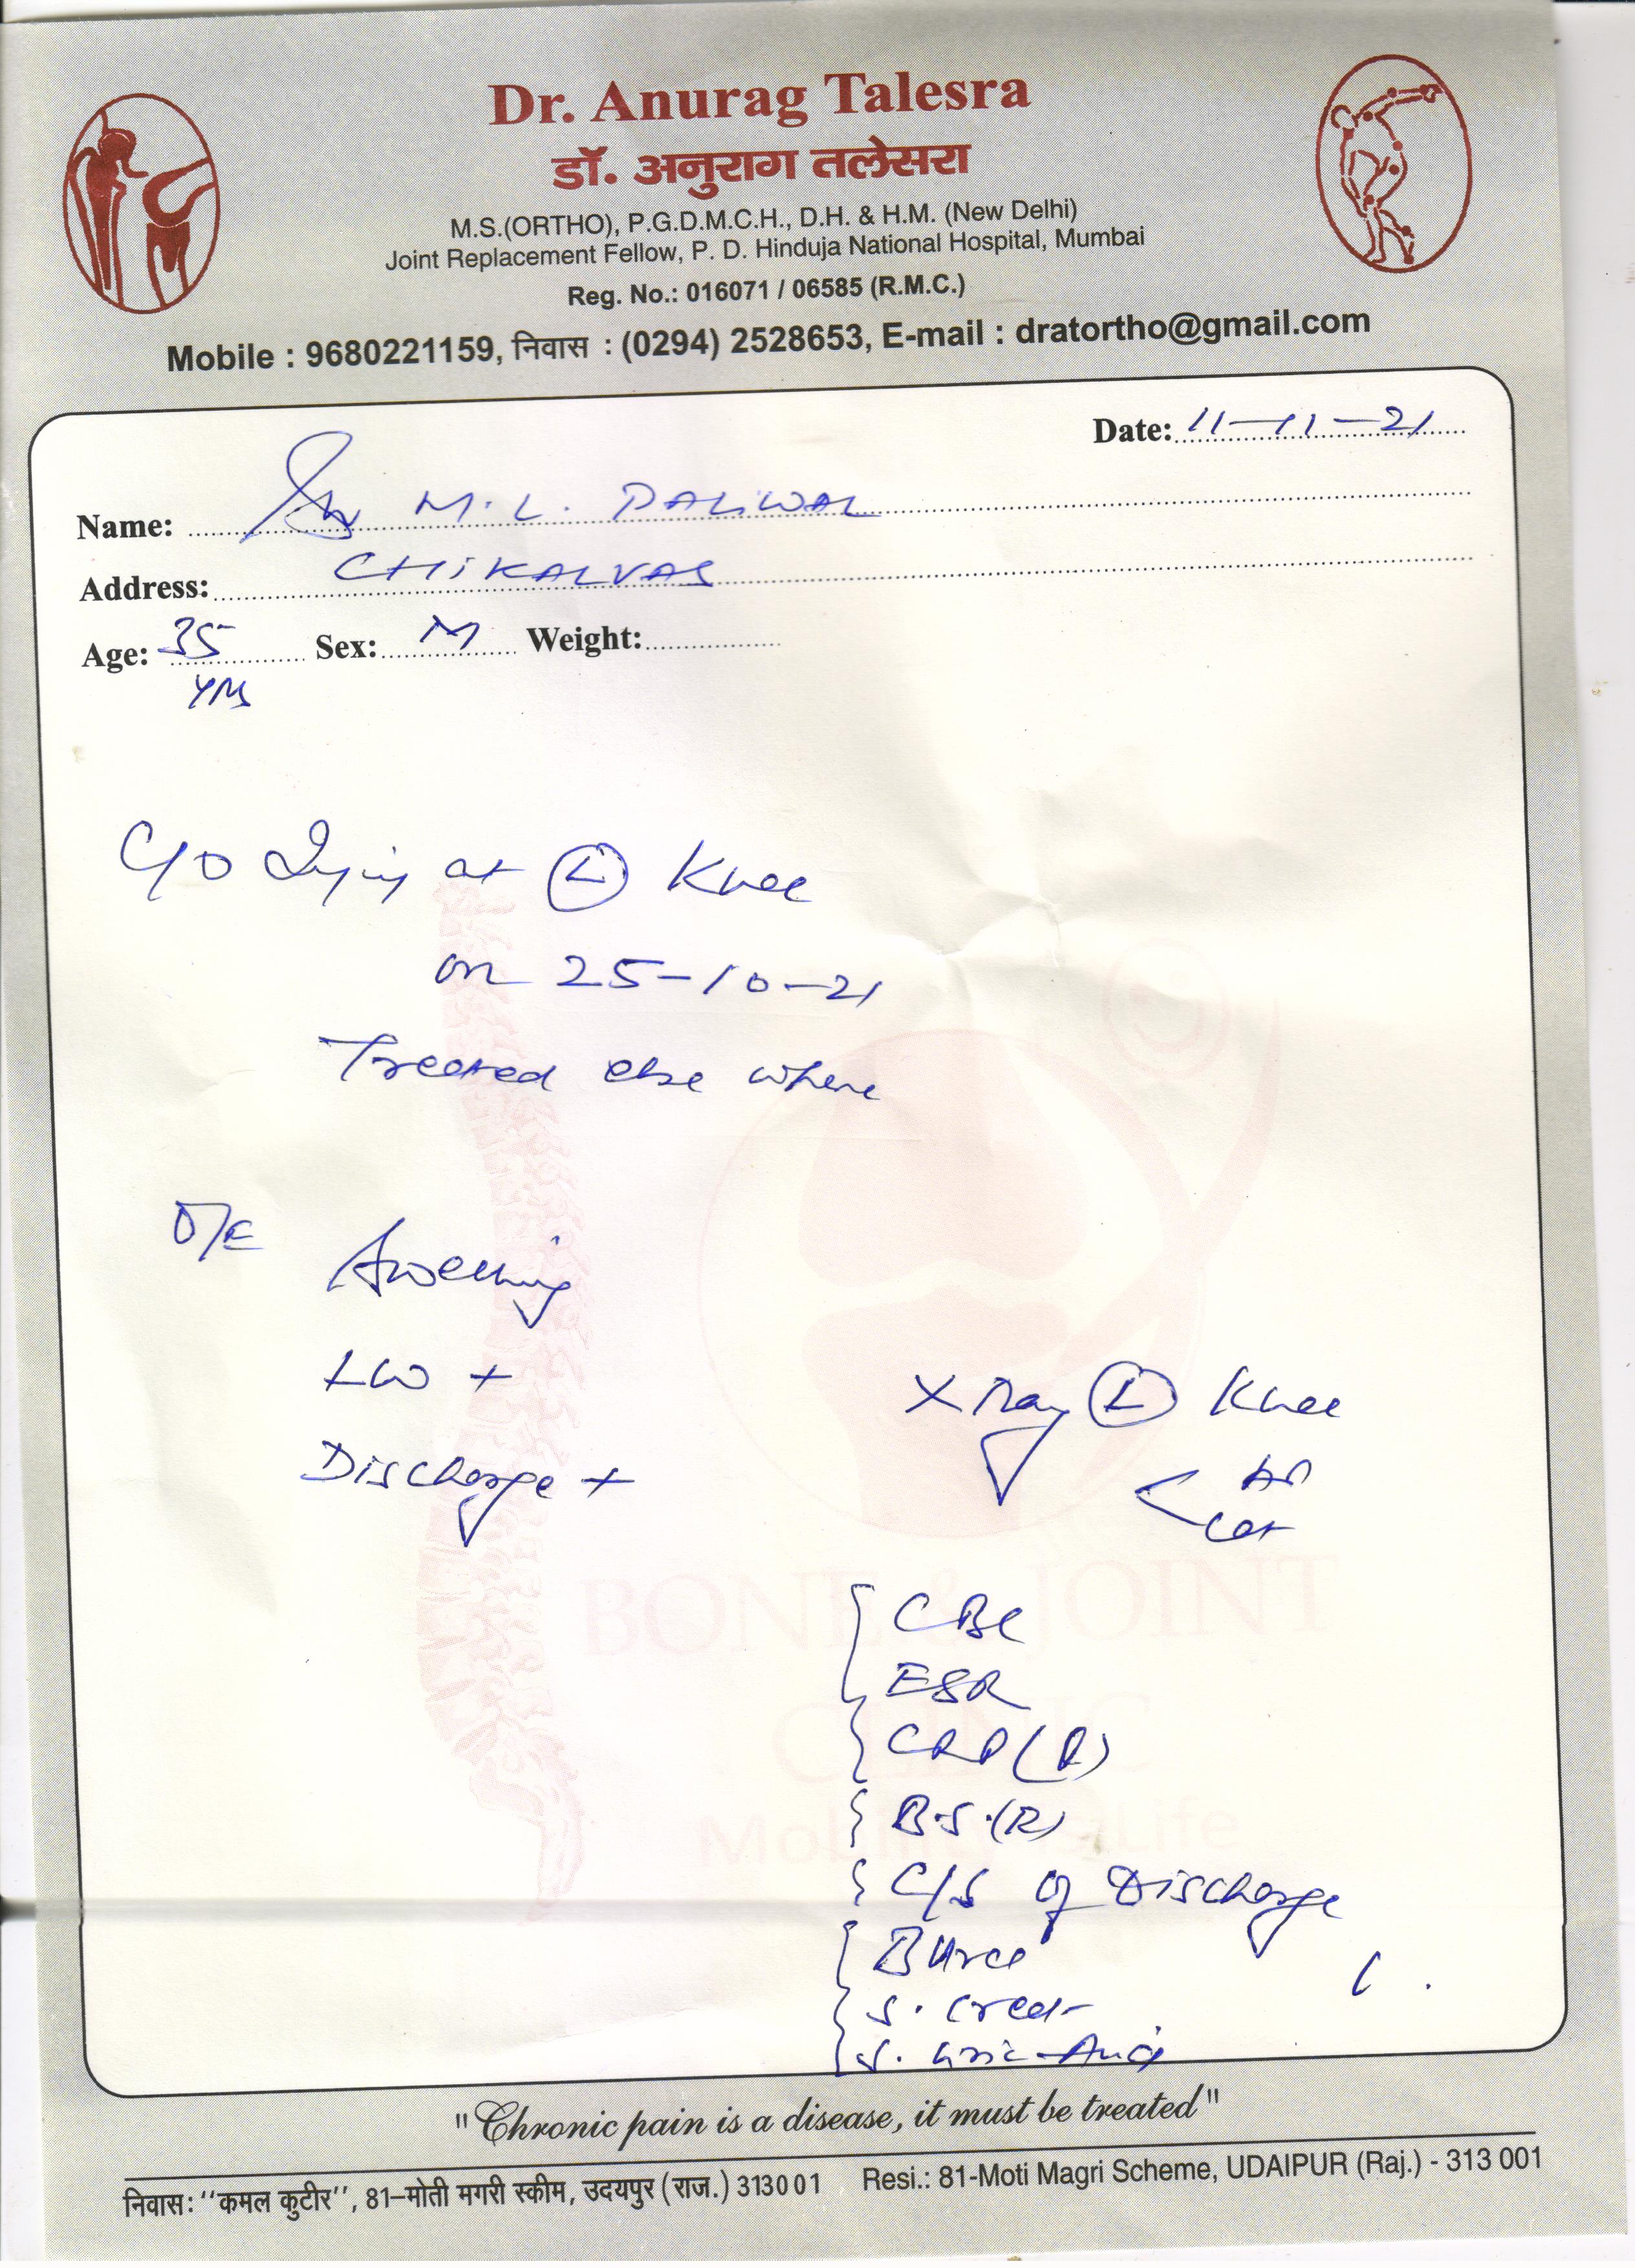 Dr. Anurag Talesra
डॉ. अनुराग तलेसरा
M.S.(ORTHO), P.G.D.M.C.H., D.H. & H.M. (New Delhi)
Joint Replacement Fellow, P. D. Hinduja National Hospital, Mumbai
Reg. No.: 016071 / 06585 (R.M.C.)
Mobile : 9680221159, निवास : (0294) 2528653, E-mail : dratortho@gmail.com
Date: 11-11-21
Name: M.L. PALIWAL
Address: CHIKALVAS
Age: 35 Sex: M Weight:
Yrs
C/O Injury at (L) Knee
on 25-10-21
Treated else where
O/E Swelling
LW +
Discharge +
X Ray (L) Knee
AP
Lat
CBC
ESR
CRP (R)
B.S.(R)
C/S of Discharge
B Urea
S. Creat
S. Uric Acid
BONE & JOINT
CLINIC
"Chronic pain is a disease, it must be treated"
निवास: ''कमल कुटीर'', 81-मोती मगरी स्कीम, उदयपुर (राज.) 313001 Resi.: 81-Moti Magri Scheme, UDAIPUR (Raj.) - 313 001